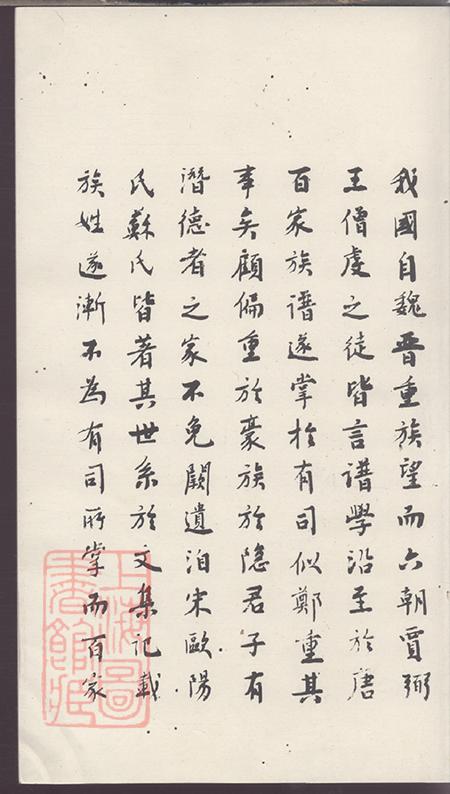 我國自魏晋重族望而六朝賈弼
王僧虔之徒皆言譜學沿至於唐
百家族譜遂掌於有司似鄭重其
事矣顧偏重於豪族於隐君子有
潛德者之家不免闕遺洎宋歐陽
氏蘇氏皆著其世系於文集記載
族姓遂漸不為有司所掌而百家
上海圖
書館藏